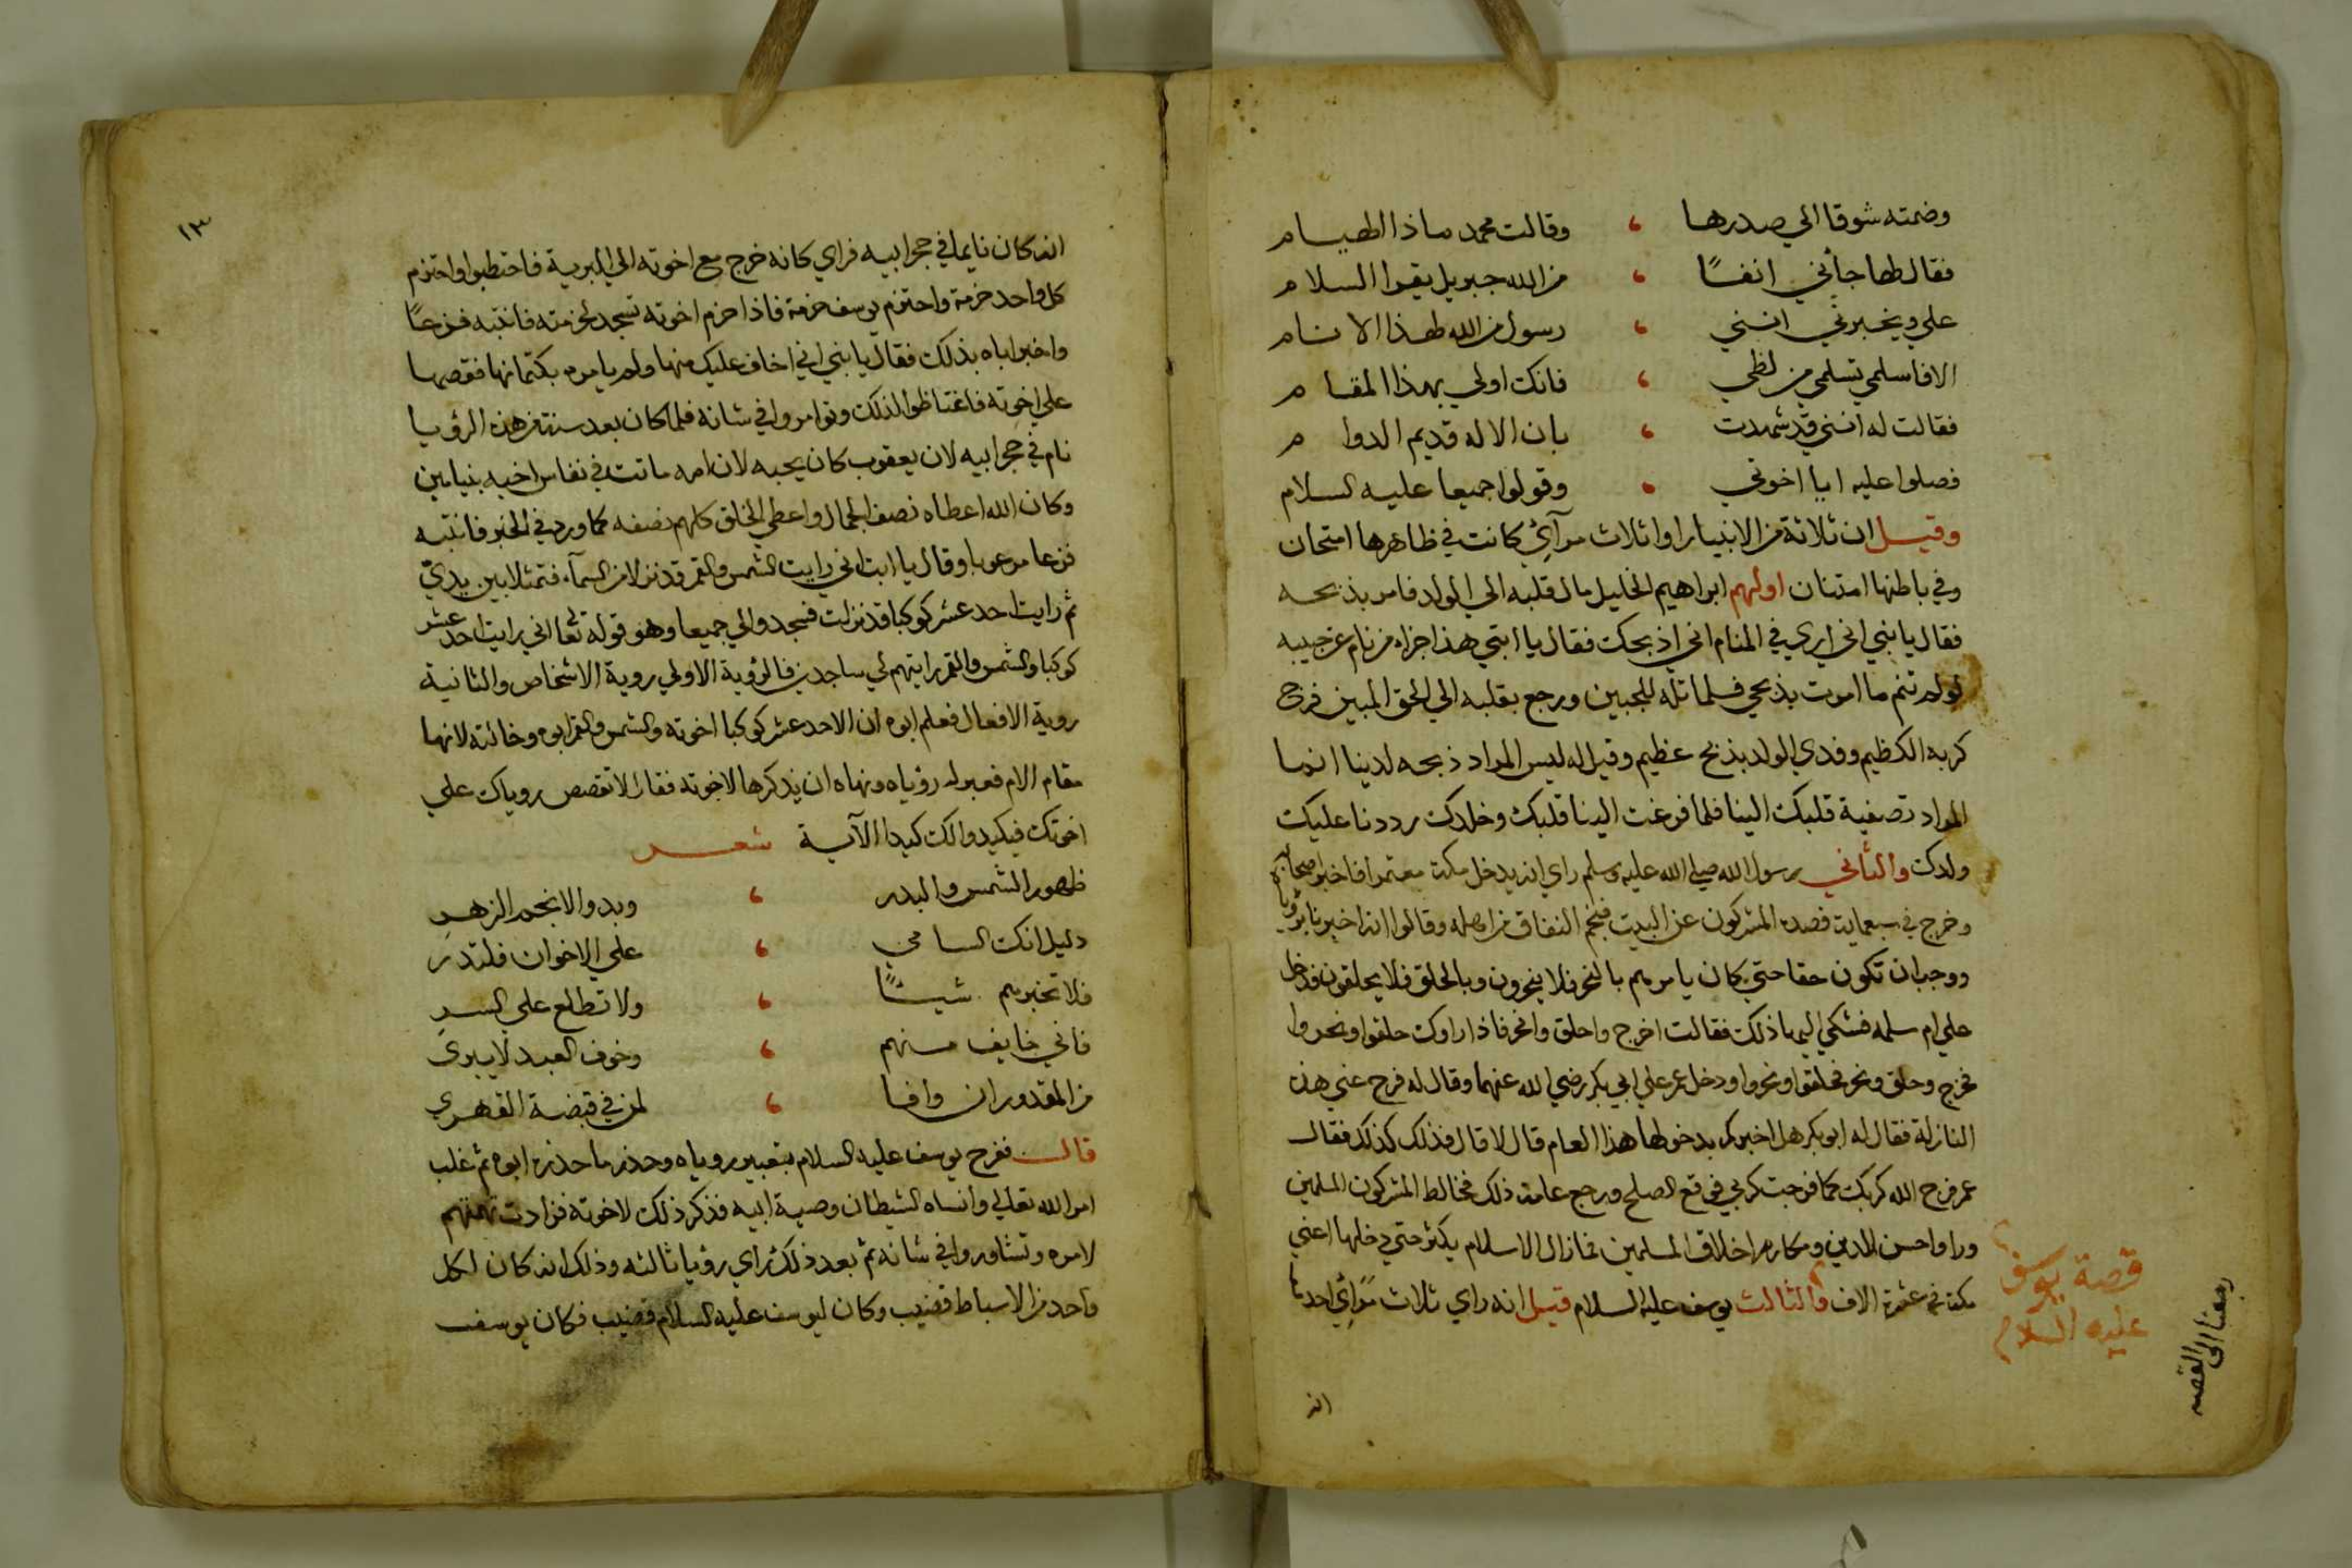 وضمته شوقا الي صدرها ، وقالت محمد ماذا الهيام
فقال لها جأني انفًا ، من الله جبريل يقرا السلام
علي ويخبرني انني ، رسول من الله لهذا الانام
الا فاسلمي تسلمي من لظي ، فانك اولي بهذا المقام
فقالت له انني قد شهدت ، بان الاله قديم الدوام
فصلوا عليه ايا اخوتي ، وقولوا جميعا عليه السلام
وقيل ان ثلاثة من الانبيا راوا ثلاث مرآئ كانت في ظاهرها امتحان
وفي باطنها امتنان اولهم ابراهيم الخليل مال قلبه الي الولد فامر بذبحه
فقال يا بني اني اري في المنام اني اذبحك فقال يا ابتي هذا جزاء من نام عن حبيبه
لو لم تنم ما امرت بذبحي فلما تله للجبين ورجع بقلبه الي الحق المبين فرج
كربه الكظيم وفدي الولد بذبح عظيم وقيل له ليس المراد ذبحه لدينا انما
المراد تصفية قلبك الينا فلما فرغت الينا قلبك وخلدك رددنا عليك
ولدك والثاني رسول الله صلي الله عليه وسلم راي انه يدخل مكة معتمرا فاخبر اصحابه
وخرج في سبعماية فصده المشركون عن البيت فنجم النفاق من اهله وقالوا انه اخبرنا برؤياه
ووجب ان تكون حقا حتي كان يامرهم بالنحر فلا ينحرون وبالحلق فلا يحلقون فدخل
علي ام سلمه فشكي اليها ذلك فقالت اخرج واحلق وانحر فاذا راوك حلقوا ونحروا
فخرج وحلق ونحر فحلقوا ونحروا ودخل عمر علي ابي بكر رضي الله عنهما وقال له فرج عني هذه
النازلة فقال له ابو بكر هل اخبركم بدخولها هذا العام قال لا قال فذلك كذلك فقال
عمر فرج الله كربك كما فرجت كربي فوقع الصلح ورجع عامه ذلك فخالط المشركون المسلمين
وراوا حسن الدين ومكارم اخلاق المسلمين فما زال الاسلام يكثر حتي دخلها اعني
مكة في عشرة الاف والثالث يوسف عليه السلام قيل انه راي ثلاث مرَائي احدها
قصة يوسف
عليه السلام
رجعنا الى القصه
انه
١٣
انه كان نايما في حجر ابيه فراي كانه خرج مع اخوته الي البرية فاحتطبوا واحتزم
كل واحد حزمة واحتزم يوسف حزمة فاذا حزم اخوته تسجد لحزمته فانتبه فزعًا
واخبر اباه بذلك فقال يا بني اني اخاف عليك منها ولم يامره بكتمانها فقصها
علي اخوته فاغتاظوا لذلك وتوامروا في شانه فلما كان بعد سنة من هذه الرؤيا
نام في حجر ابيه لان يعقوب كان يحبه لان امه ماتت في نفاس اخيه بنيامين
وكان الله اعطاه نصف الجمال واعطي الخلق كلهم نصفه كما ورد في الخبر فانتبه
فزعا مرعوبا وقال يا ابت اني رايت الشمس والقمر قد نزلا من السمآء فتمثلا بين يديّ
ثم رايت احد عشر كوكبا قد نزلت فسجدوا لي جميعا وهو قوله تعالي اني رايت احد عشر
كوكبا والشمس والقمر رايتهم لي ساجدين فالرؤية الاولي روية الاشخاص والثانية
روية الافعال فعلم ابوه ان الاحد عشر كوكبا اخوته والشمس والقمر ابوه وخالته لانها
مقام الام فعبر له رؤياه ونهاه ان يذكرها لاخوته فقال لا تقصص روياك علي
اخوتك فيكيدوا لك كيدا الآية شعر
ظهور الشمس والبدر ، وبدو الانجم الزهر
دليل انك السامي ، علي الاخوان فلتدر
فلا تخبرهم شيئًا ، ولا تطلع علي السر
فاني خايف منهم ، وخوف العبد لا يبري
من المقدور ان وافا ، لمن في قبضة القهري
قال ففرح يوسف عليه السلام بتعبير روياه وحذر ما حذره ابوه ثم غلب
امر الله تعالي وانساه الشيطان وصية ابيه فذكر ذلك لاخوته فزادت تهمتهم
لامره وتشاوروا في شانه ثم بعد ذلك راي رؤيا ثالثه وذلك انه كان لكل
واحد من الاسباط قضيب وكان ليوسف عليه السلام قضيب فكان يوسف